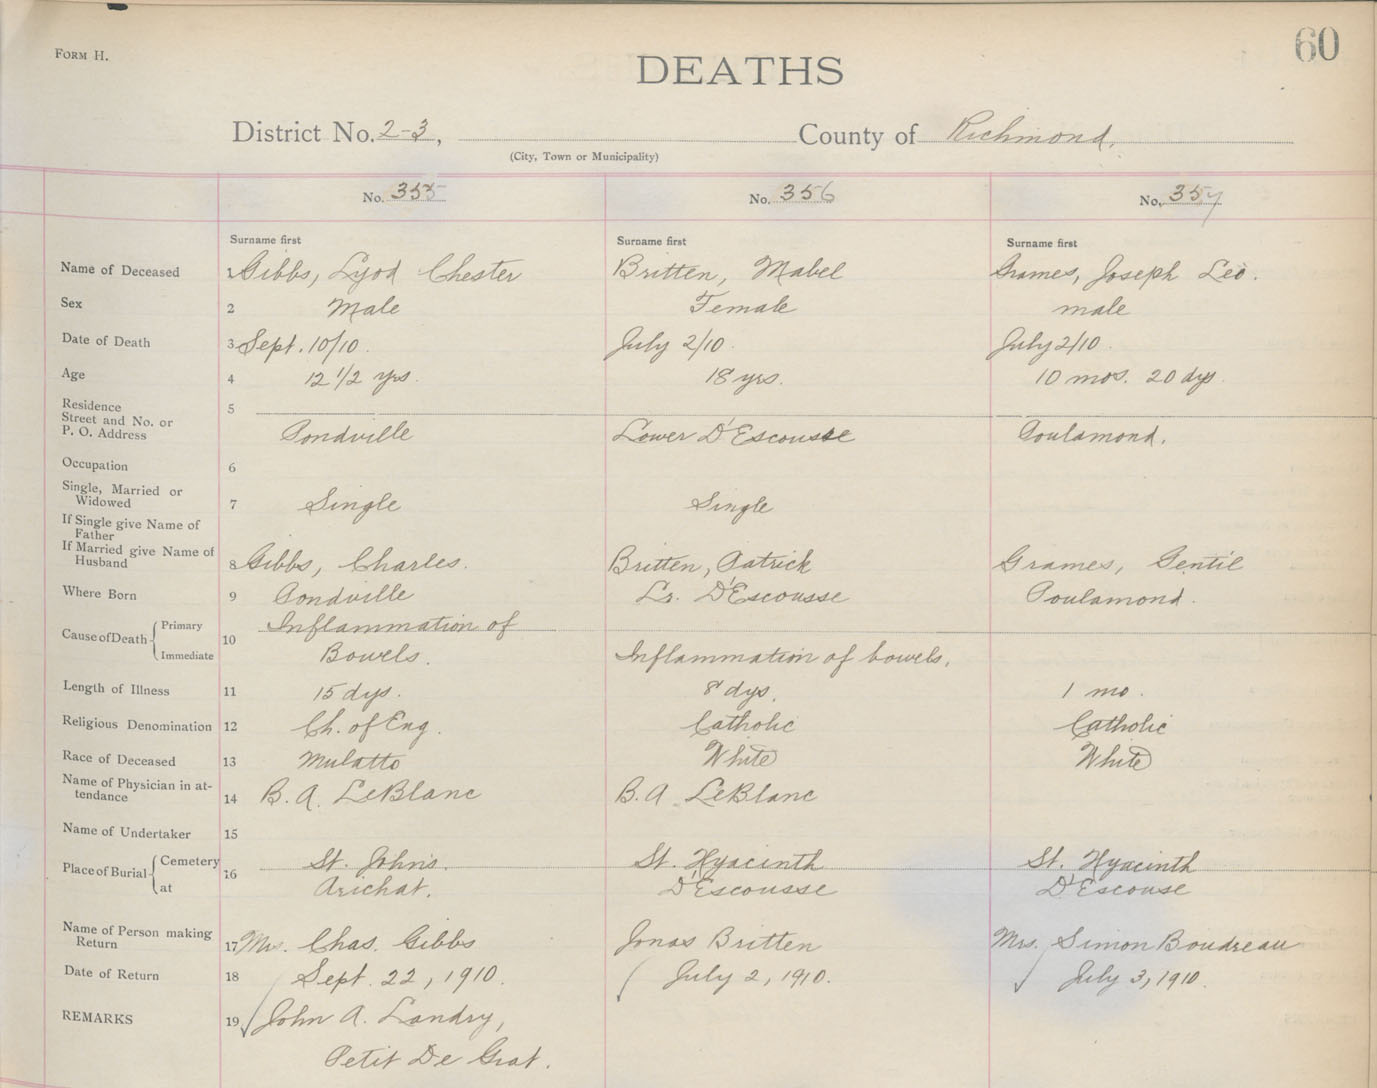 60
FORM H.
DEATHS
District No. 2-3, County of Richmond.
(City, Town or Municipality)
No. 355 No. 356 No. 357
Surname first Surname first Surname first
Name of Deceased 1 Gibbs, Lyod Chester Britten, Mabel Grames, Joseph Leo.
Sex 2 Male Female male
Date of Death 3 Sept. 10/10. July 2/10. July 2/10.
Age 4 12 1/2 yrs. 18 yrs. 10 mos. 20 dys.
Residence 5
Street and No. or
P. O. Address Pondville Lower D'Escousse Poulamond.
Occupation 6
Single, Married or
Widowed 7 Single Single
If Single give Name of
Father
If Married give Name of
Husband 8 Gibbs, Charles. Britten, Patrick Grames, Gentil
Where Born 9 Pondville Lr. D'Escousse Poulamond.
Cause of Death Primary 10 Inflammation of
Immediate Bowels. Inflammation of bowels.
Length of Illness 11 15 dys. 8 dys. 1 mo.
Religious Denomination 12 Ch. of Eng. Catholic Catholic
Race of Deceased 13 Mulatto White White
Name of Physician in at-
tendance 14 B. A. LeBlanc B. A LeBlanc
Name of Undertaker 15
Place of Burial Cemetery 16 St. John's. St. Hyacinth St. Hyacinth
at Arichat. D'Escousse D'Escouse
Name of Person making
Return 17 Mrs. Chas. Gibbs Jonas Britten Mrs. Simon Boudreau
Date of Return 18 Sept. 22, 1910. July 2, 1910. July 3, 1910.
REMARKS 19 John A. Landry,
Petit De Grat.